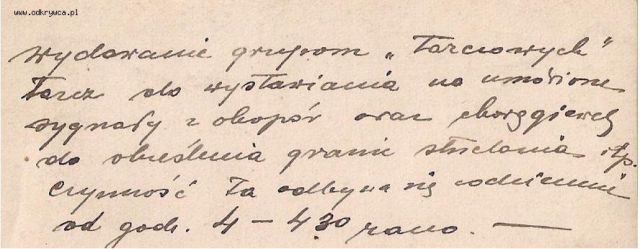 www.odkrywca.pl
wydawanie grupom „Tarczowych”
Tarcz do wystawiania na umówione
sygnały z okopów oraz chorągiewek
do określenia granic strzelania itp.
Czynność Ta odbywa się codziennie
od godz. 4 – 4³⁰ rano. —